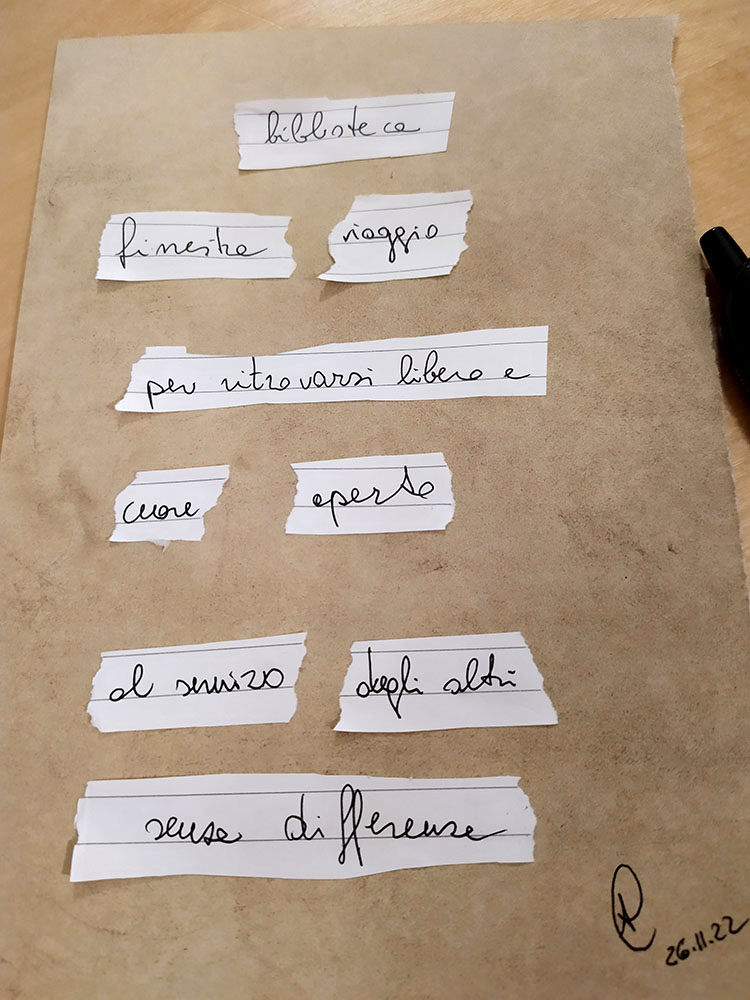 biblioteca
finestra viaggio
per ritrovarsi libero e
cuore aperto
al servizio degli altri
senza differenze
26.11.22